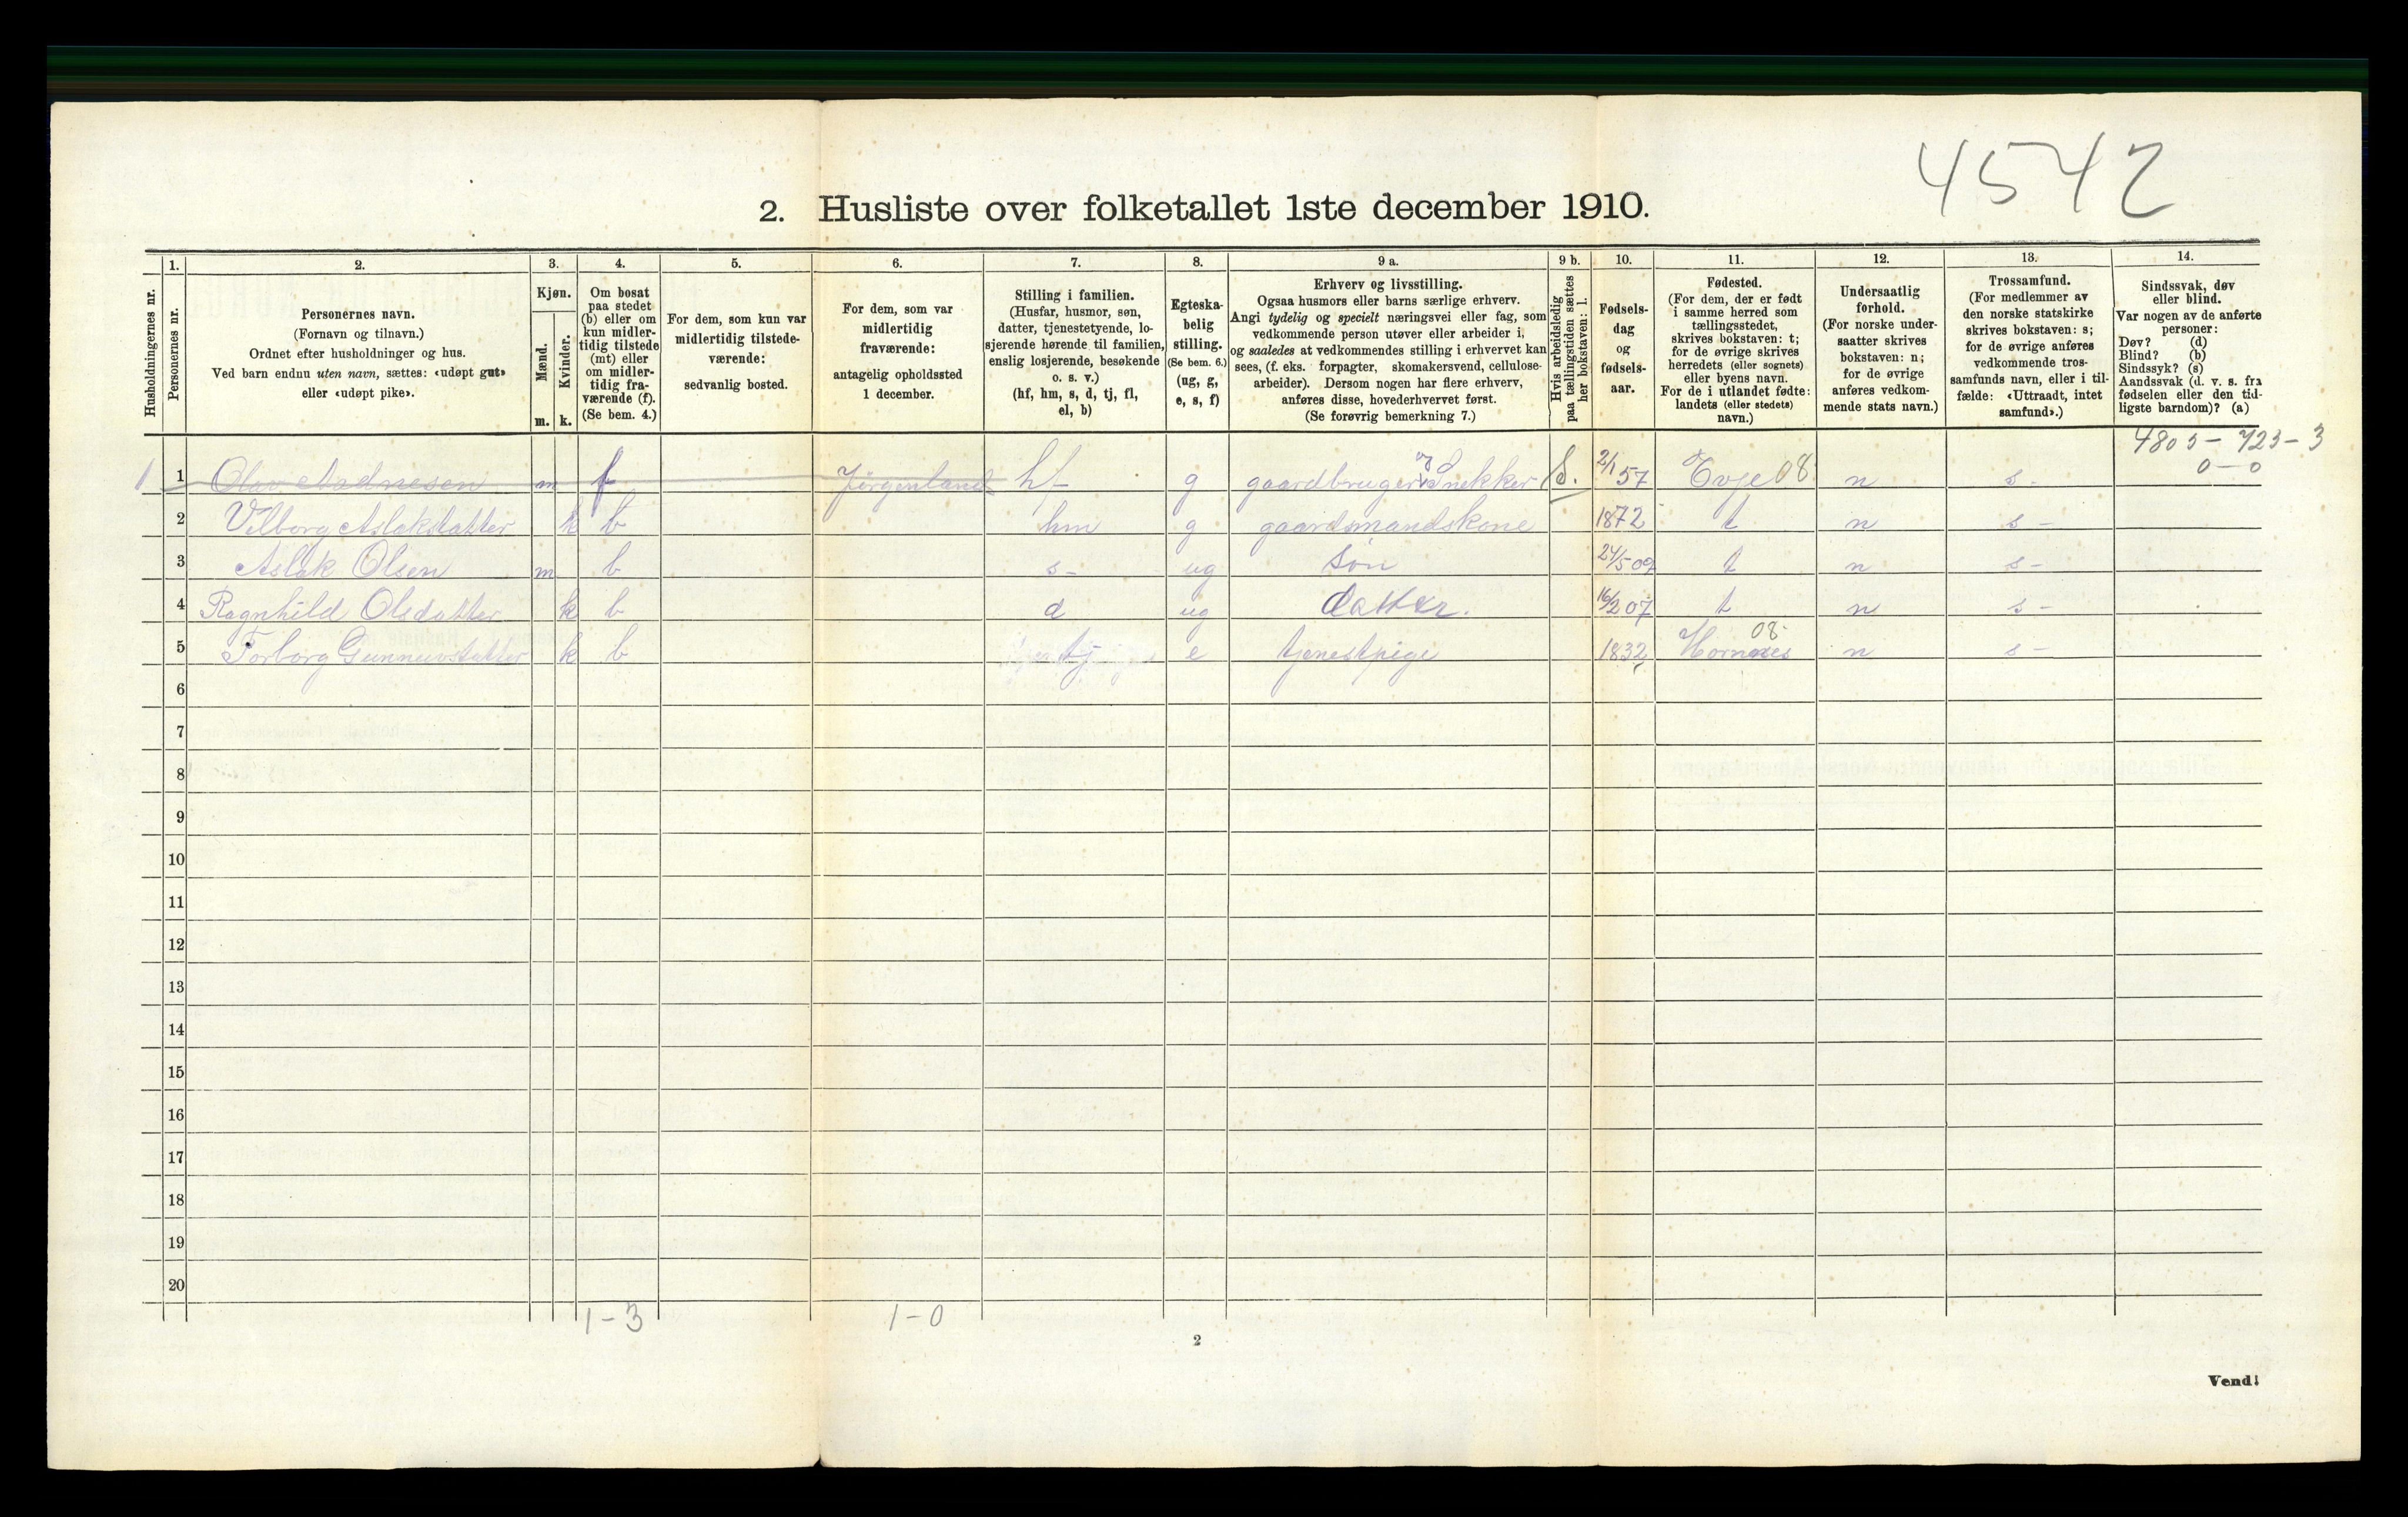 4542
2. Husliste over folketallet 1ste december 1910.
Husholdningernes nr.
1. Personernes nr.
2. Personernes navn. (Fornavn og tilnavn.) Ordnet efter husholdninger og hus. Ved barn endnu uten navn, sættes: «udøpt gut» eller «udøpt pike».
3. Kjøn. Mænd. m. Kvinder. k.
4. Om bosat paa stedet (b) eller om kun midlertidig tilstede (mt) eller om midlertidig fraværende (f). (Se bem. 4.)
5. For dem, som kun var midlertidig tilstedeværende: sedvanlig bosted.
6. For dem, som var midlertidig fraværende: antagelig opholdssted 1 december.
7. Stilling i familien. (Husfar, husmor, søn, datter, tjenestetyende, losjerende hørende til familien, enslig losjerende, besøkende o. s. v.) (hf, hm, s, d, tj, fl, el, b)
8. Egteskabelig stilling. (Se bem. 6.) (ug, g, e, s, f)
9 a. Erhverv og livsstilling. Ogsaa husmors eller barns særlige erhverv. Angi tydelig og specielt næringsvei eller fag, som vedkommende person utøver eller arbeider i, og saaledes at vedkommendes stilling i erhvervet kan sees, (f. eks. forpagter, skomakersvend, cellulosearbeider). Dersom nogen har flere erhverv, anføres disse, hovederhvervet først. (Se forøvrig bemerkning 7.)
9 b. Hvis arbeidsledig paa tællingstiden sættes her bokstaven: l.
10. Fødselsdag og fødselsaar.
11. Fødested. (For dem, der er født i samme herred som tællingsstedet, skrives bokstaven: t; for de øvrige skrives herredets (eller sognets) eller byens navn. For de i utlandet fødte: landets (eller stedets) navn.)
12. Undersaatlig forhold. (For norske undersaatter skrives bokstaven: n; for de øvrige anføres vedkommende stats navn.)
13. Trossamfund. (For medlemmer av den norske statskirke skrives bokstaven: s; for de øvrige anføres vedkommende trossamfunds navn, eller i tilfælde: «Uttraadt, intet samfund».)
14. Sindssvak, døv eller blind. Var nogen av de anførte personer: Døv? (d) Blind? (b) Sindssyk? (s) Aandssvak (d. v. s. fra fødselen eller den tidligste barndom)? (a)
4805 - 723 - 3
0 - 0
1 1 Olav Aadnesen m f Jørgenland hf g gaardbruger og Snekker S. 2/1 57 Evje 08 n s -
2 Velborg Aslaksdatter k b hm g gaardsmandskone 1872 t n s -
3 Aslak Olsen m b s - ug søn 24/5 09 t n s -
4 Ragnhild Olsdatter k b d ug datter. 16/2 07 t n s -
5 Torborg Gunnuvsdatter k b tj e tjenestpige 1832 Hornnes 08 n s -
6
7
8
9
10
11
12
13
14
15
16
17
18
19
20
1 - 3 1 - 0
2
Vend!